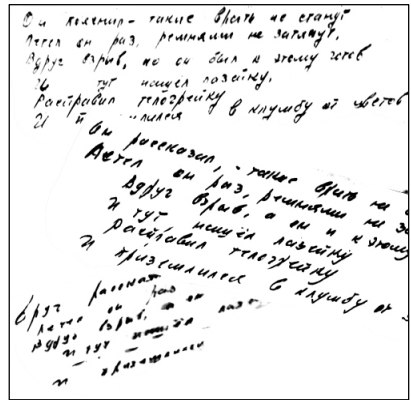 Он пояснил - такие врать не станут
Летел он раз, ремнями не затянут,
Вдруг взрыв, но он был к этому готов
И тут нашел лазейку,
Расправил телогрейку
И в клумбу от цветов
Он рассказал, - такие врать не
Летел он раз, ремнями не за
Вдруг взрыв, а он и к этому
И тут нашёл лазейку
Расправил телогрейку
И приземлился в клумбу от
Друг рассказ
Летел он раз
Вдруг взрыв, а он
И тут нашёл лазе
И приземлился